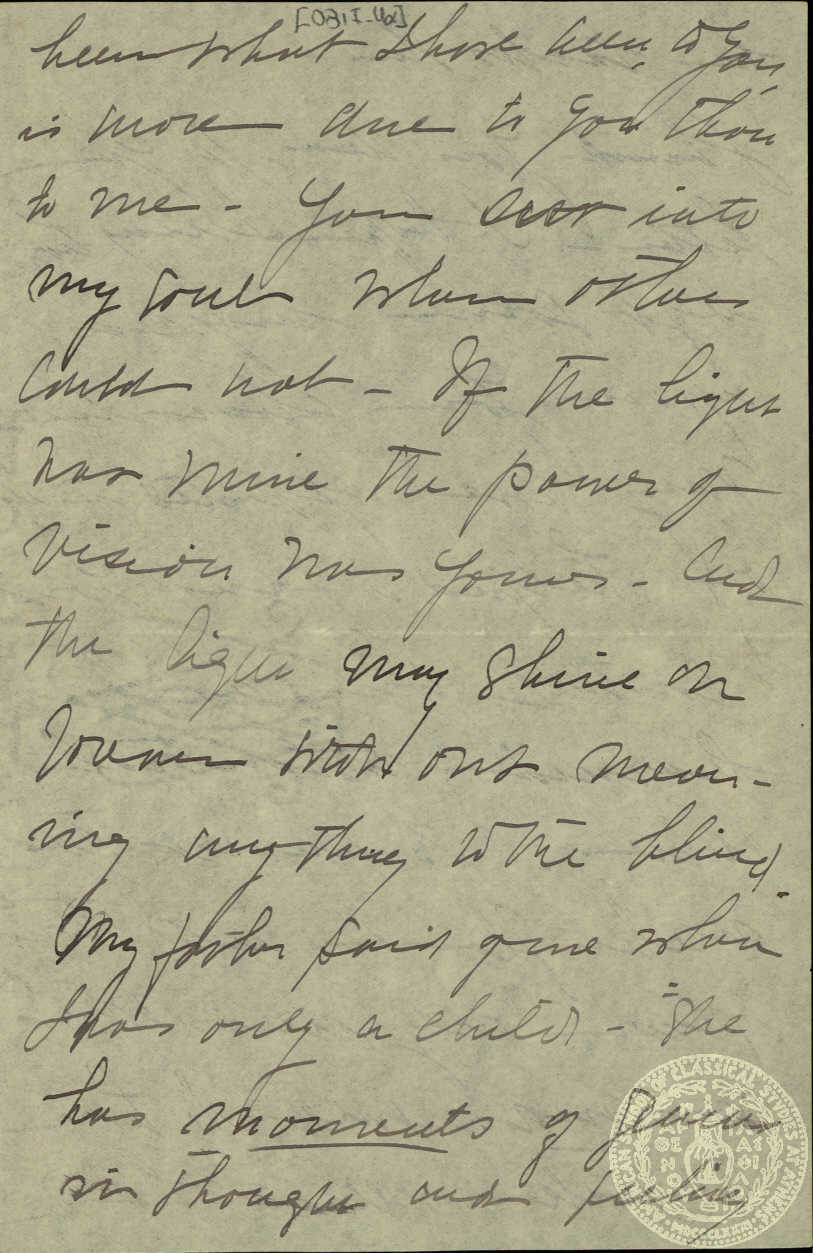 been what I have been to you,
is more due to you than
to me - You saw into
my soul when others
could not - If the light
was mine the power of
vision was yours - And
the light may shine on
forever without mean-
ing anything to the blind.
My father said of me when
I was only a child - "She
has moments of genius
in thought and feeling
AMERICAN SCHOOL OF CLASSICAL STUDIES AT ATHENS
MDCCCLXXXI